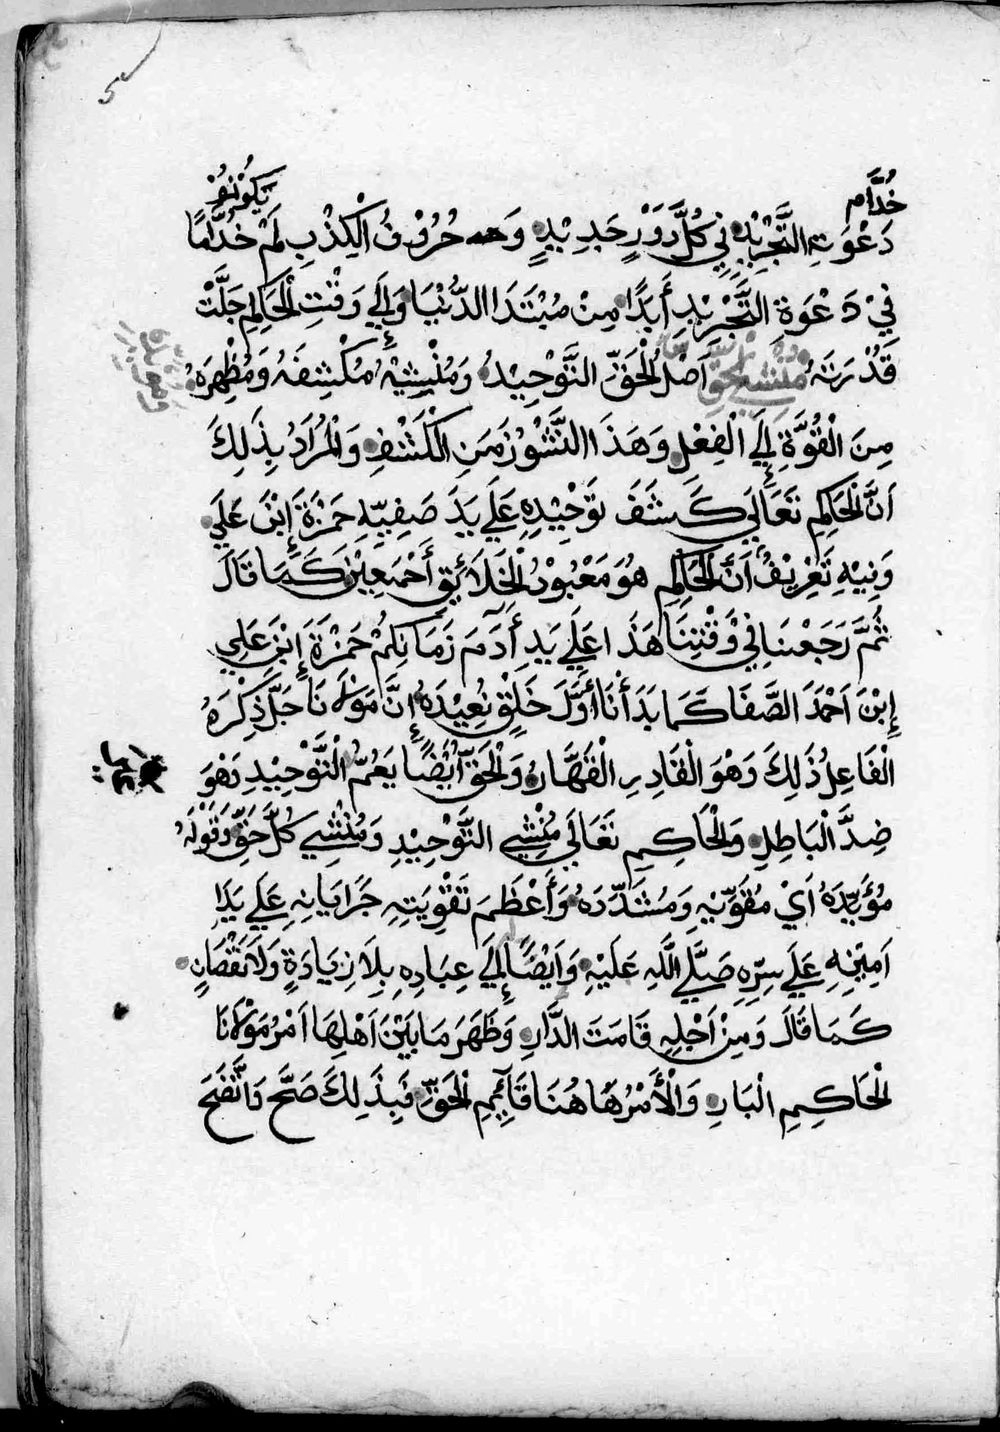 خُدَّام
يَكُوْنُوْ
دَعْوَةِ التَّجْرِيْدِ فِي كُلَّ دَوْرٍ جَدِيْدٍ وَحُرُوْفُ الْكِذْبِ لَمْ خُدَّامًا
فِيْ دَعْوَةِ التَّجْرِيْدِ أَبَدًا مِنْ مُبْتَدَا الدُّنْيَا وَإِلَي وَقْتِ الْحَاكِمِ جَلَّتْ
قُدْرَتَهُ مُنْشِيْ الْحَقِّ اَصْلُ الْحَقِّ التَّوْحِيْدُ وَمُنْشِيْهُ مُكْشِفَهُ وَمُظْهِرَهُ
مِنَ الْقُوَّةِ إِلَي الْفِعْلِ وَهَذَا النُّشُوْ زَمَنِ الْكَشْفِ وَالْمُرَادُ بِذَلِكَ
اَنَّ الْحَاكِمِ تَعَالَي كَشَفَ تَوْحِيْدِهِ عَلَي يَدَ صَفِيِّهِ حَمْزَةَ إِبْنَ عَلَي
وَفِيْهِ تَعْرِيْفُ اَنَّ الْحَاكِمِ هُوَ مَعْبُوْدُ الْخَلَائِقِ أَجْمَعِيْنَ كَمَا قَالَ
ثُمَّ رَجَعْنَا فِي وَقْتِنَا هَذَا عَلَي يَدِ أَدَمَ زَمَانِكُمْ حَمْزَةَ إِبْنَ عَلِي
إِبْنَ اَحْمَدَ الصَّفَا كَمَا بَدَأْنَا أَوَّلَ خَلْقٍ نُعِيْدَهُ إِنَّ مَوْلَانَا جَلَّ ذِكْرَهُ
الْفَاعِلُ ذَلِكَ وَهْوَ الْقَادِرِ الْقَهَّارُ وَالْحَقِّ أَيْضًا يَعُمُّ الْتَّوْحِيْدِ وَهْوَ
ضِدَّ الْبَاطِلِ وَالْحَاكِمِ تَعَالَي مُنْشِي التَّوْحِيْدِ وَمُنْشِي كُلَّ حَقٍّ وَقَوْلَهُ
مُؤَيِّدَهُ اَيْ مُقَوِّيْهِ وَمُشَدِّدَهُ وَأَعْظَمَ تَقْوِيَتِهِ جَرَايَانِهِ عَلَي يَدَا
اَمِيْنِهِ عَلَي سِرِّهِ صَلَّي اللَّهِ عَلَيْهِ وَاَيْضًا إِلَي عِبَادِهِ بِلَا زِيَادَةٍ وَلَا نَقْصَانٍ
كَمَا قَالَ وَمِنْ اَجْلِهِ قَامَتَ الدَّارِ وَظَهَرَ مَا بَيْنَ اَهْلِهَا اَمْرُ مَوْلَانَا
الْحَاكِمِ الْبَارِ وَالْأَمْرُ هَاهُنَا قَآئِمِ الْحَقِّ فَبِذَلِكَ صَحَّ وَاتَّضَحَ